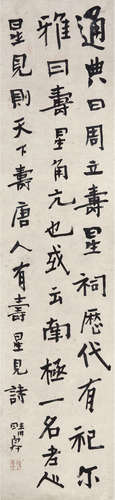 通典曰周立壽星祠歷代有祀尔
雅曰壽星角亢也或云南極一名老人
星見則天下壽唐人有壽星見詩